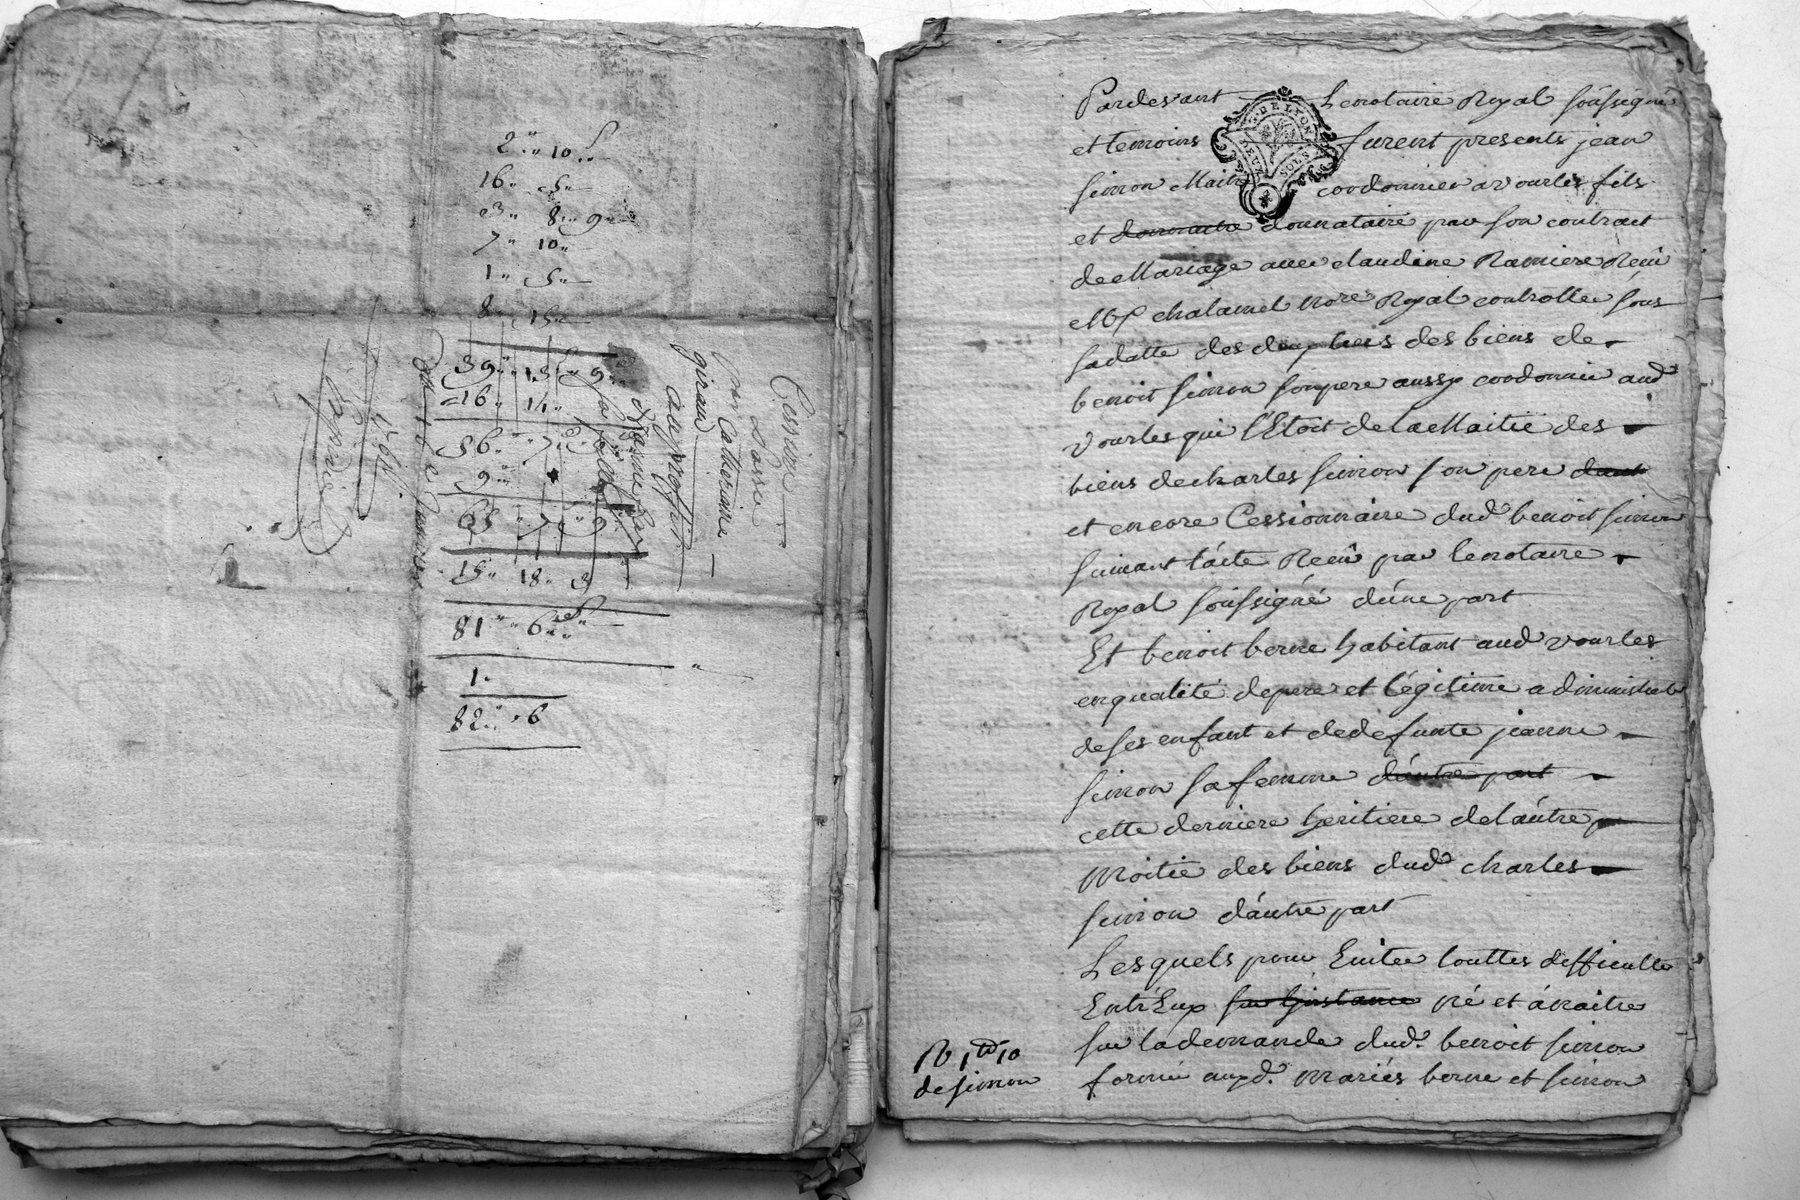 2 10
16 5
3 8 9
7 10
1 5
8 15
39 13 9
16 14
56 7
9
65 7 9
15 18 3
81 6
1
82 6
Cession
par Catherinne
giraud
au proffit
d'Estienne
Du 10e Janvier
1769
Expedié
Pardevant Lenotaire Royal soussigné
et temoins furent presents jean
simon Maitre cordonnier a vourles fils
et donnataire par son contract
de Mariage avec claudine Ramiere Reçu
Me chalamel nore Royal controllée sous
sa datte des biens de
benoit simon son pere aussy cordonnier aud
vourles qui l'Etoit de la Maitié des
biens de charles simon son pere dont
et encore Cessionnaire dud benoit simon
suivant l'acte Reçu par lenotaire
Royal soussigné d'une part
Et benoit berne habitant aud vourles
en qualité de pere et légitime administrateur
de ses enfant et de defunte jeanne
simon sa femme d'autre part
cette derniere heritiere de l'autre
Moitié des biens dud charles
simon d'autre part
Lesquels pour Eviter touttes difficultés
Entr'Eux sur l'instance né et á naitre
sur la demande dud. benoit simon
formée auxd. mariés berne et simon
DEUX SOLS
G. DE LYON
No 1er 10
de simon